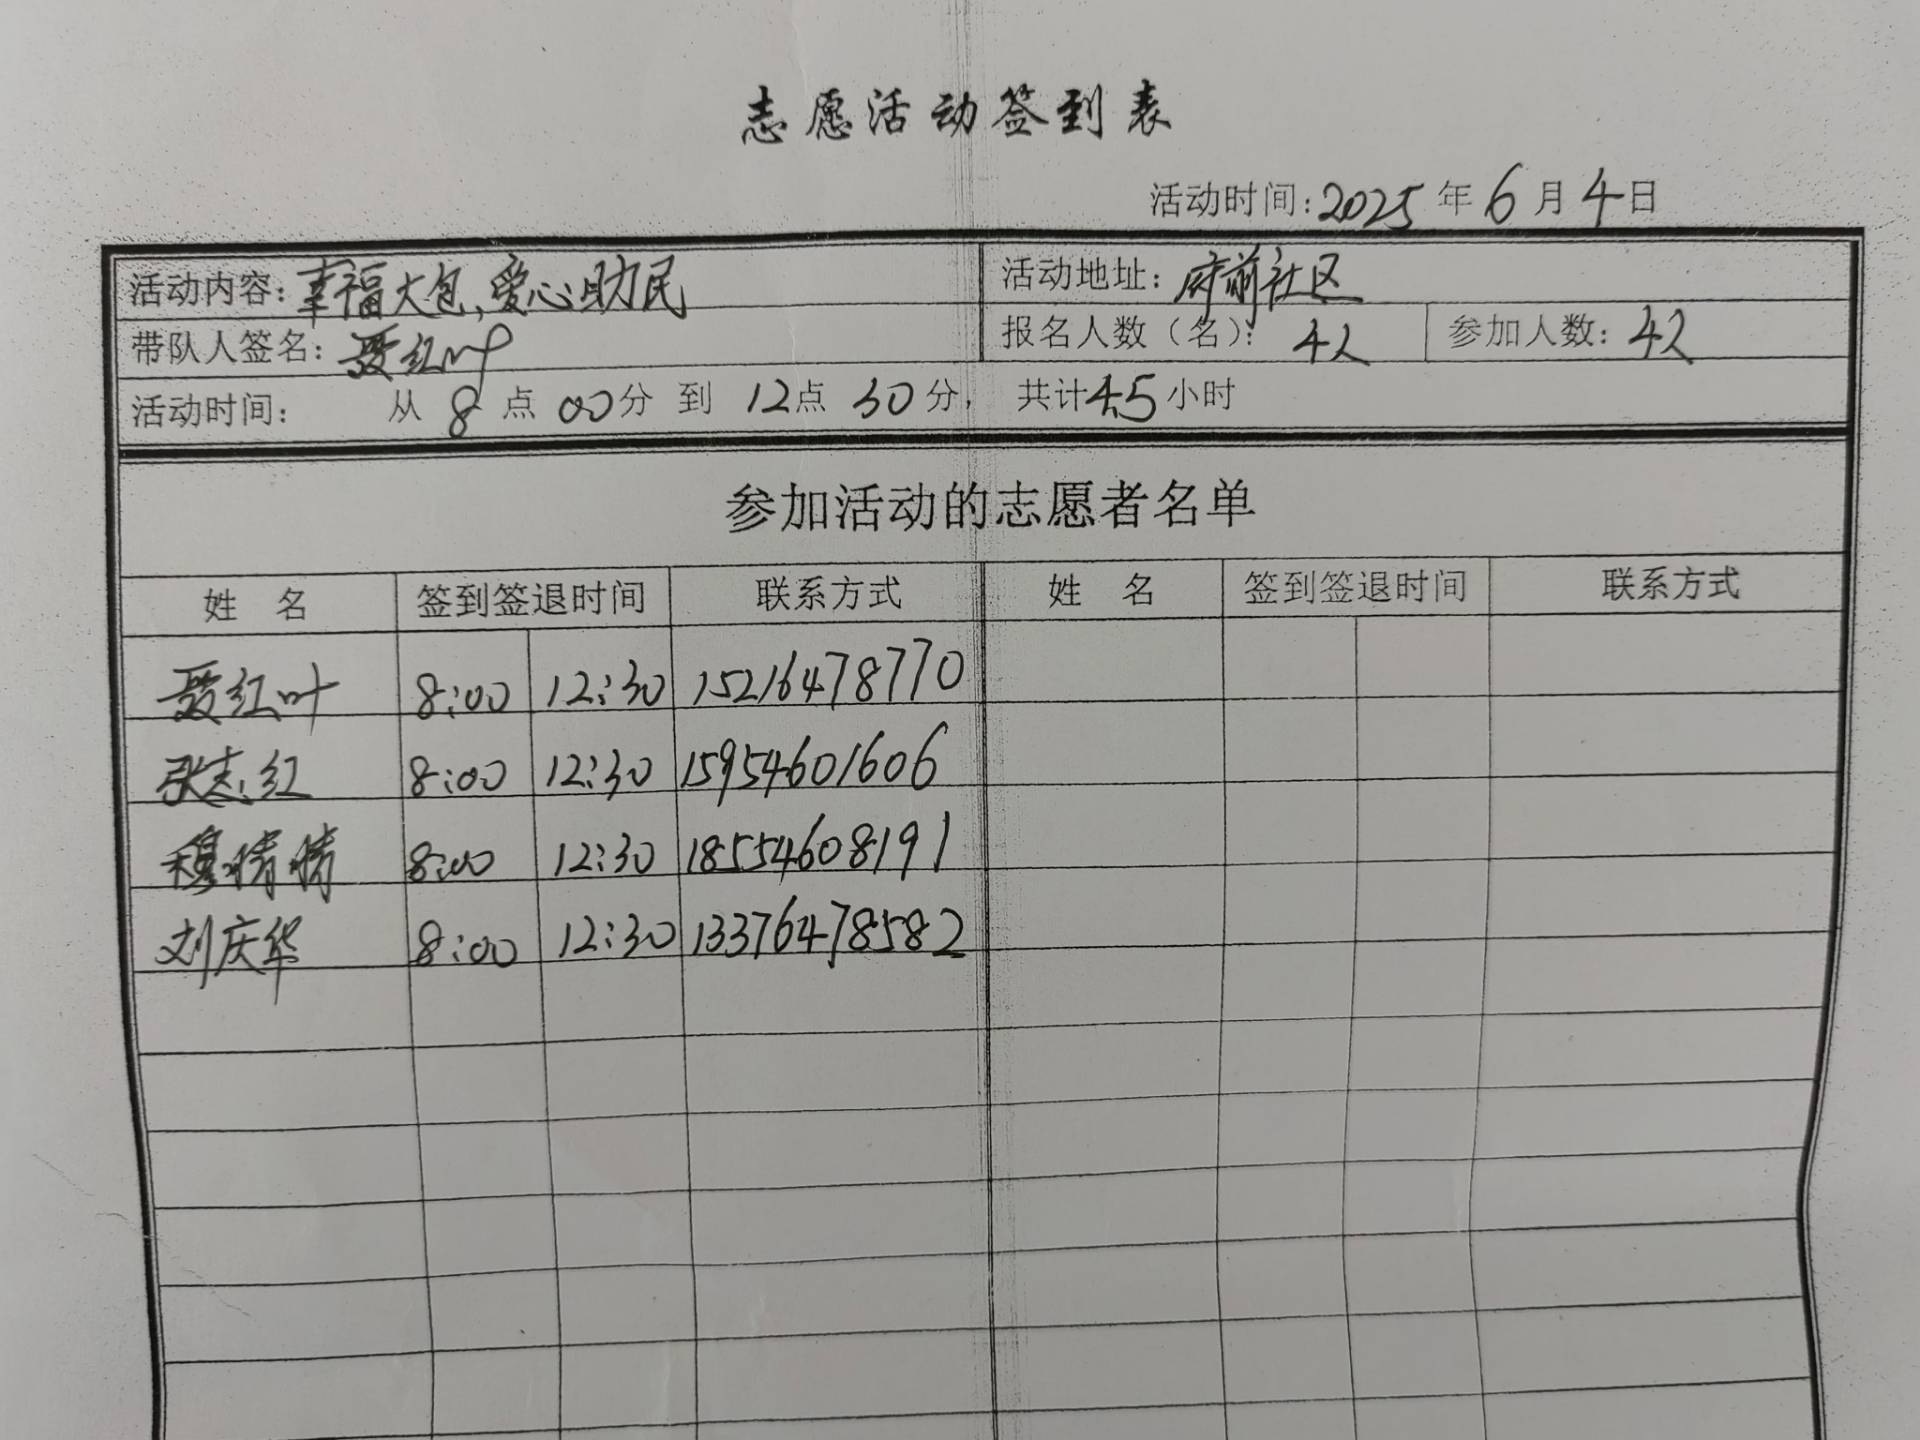 志愿活动签到表
活动时间:2025年6月4日
活动内容:幸福大包,爱心助民 活动地址:府前社区
带队人签名:聂红叶 报名人数(名):4人 参加人数:4人
活动时间: 从8点00分到12点30分, 共计4.5小时
参加活动的志愿者名单
姓 名 签到签退时间 联系方式 姓 名 签到签退时间 联系方式
聂红叶 8:00 12:30 15216478770
张志红 8:00 12:30 15954601606
穆晴晴 8:00 12:30 18554608191
刘庆华 8:00 12:30 13376478582